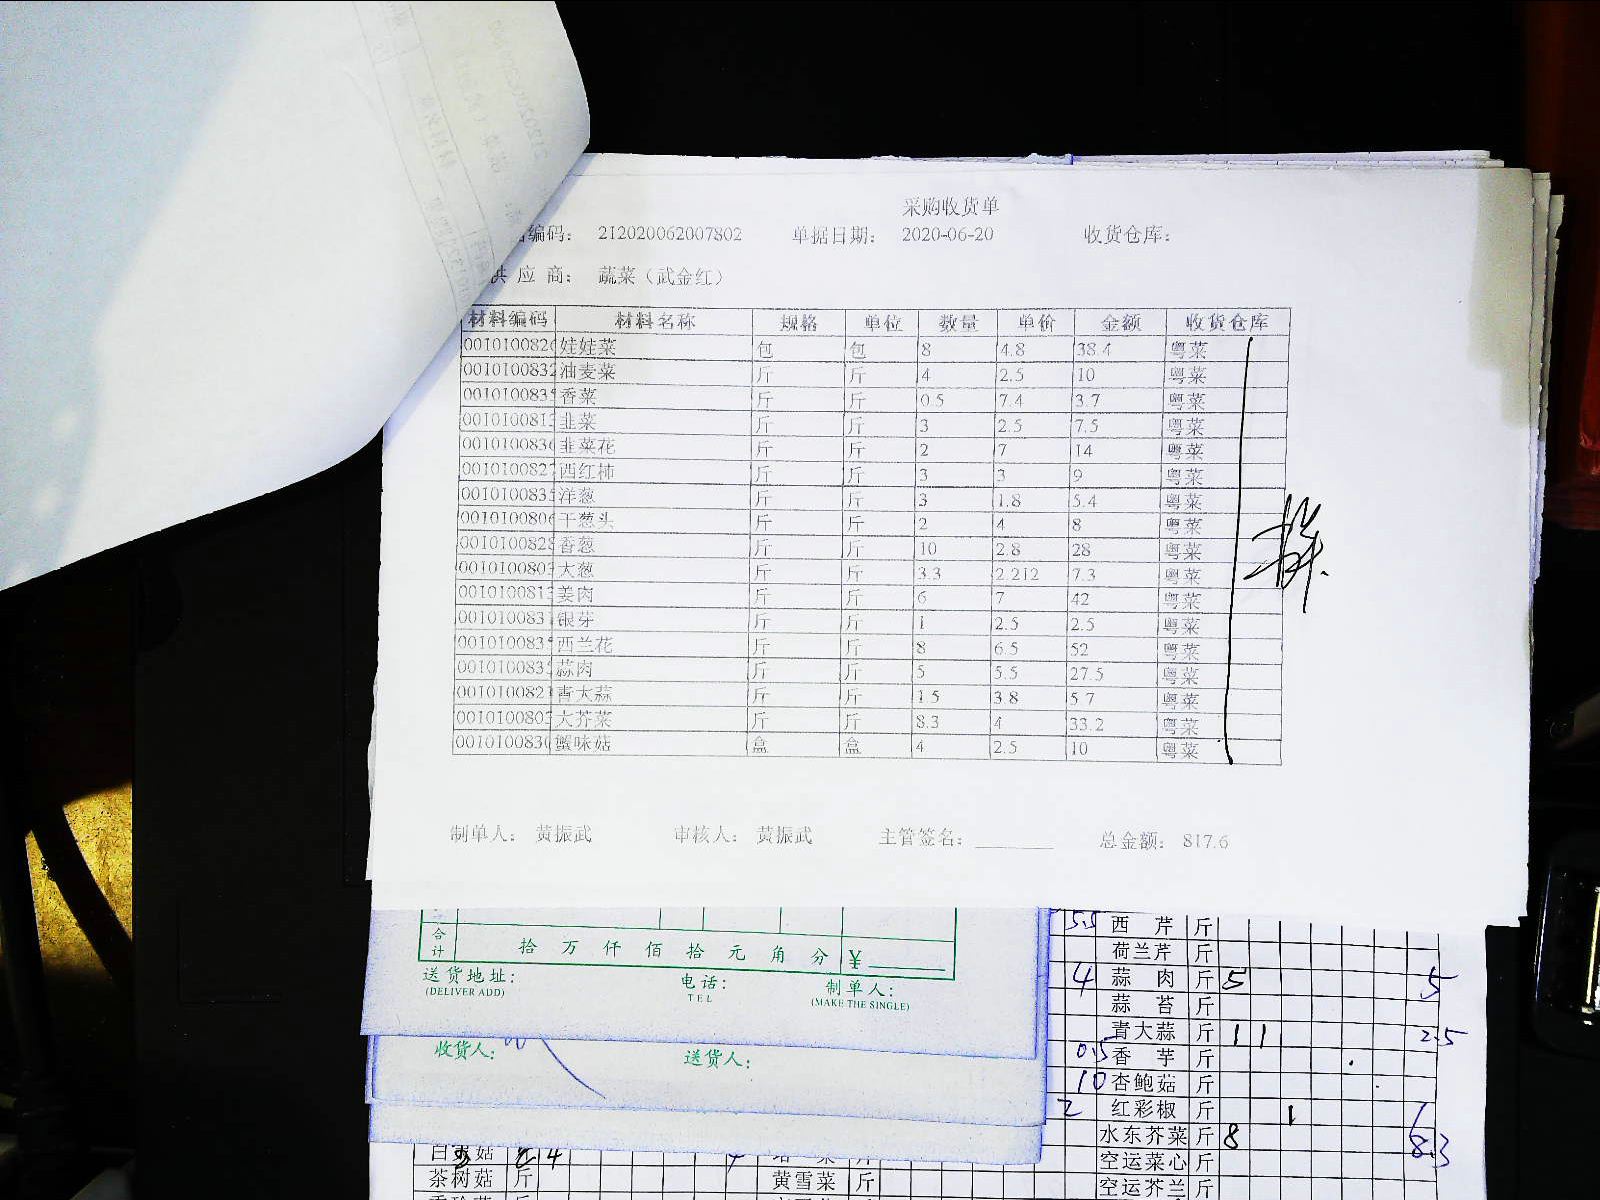 采购收货单
编码： 212020062007802 单据日期： 2020-06-20 收货仓库：
供 应 商： 蔬菜（武金红）
材料编码 材料名称 规格 单位 数量 单价 金额 收货仓库
001010082 娃娃菜 包 包 8 4.8 38.4 粤菜
0010100832 油麦菜 斤 斤 4 2.5 10 粤菜
001010083 香菜 斤 斤 0.5 7.4 3.7 粤菜
001010081 韭菜 斤 斤 3 2.5 7.5 粤菜
001010083 韭菜花 斤 斤 2 7 14 粤菜
001010082 西红柿 斤 斤 3 3 9 粤菜
001010083 洋葱 斤 斤 3 1.8 5.4 粤菜
001010080 干葱头 斤 斤 2 4 8 粤菜
001010082 香葱 斤 斤 10 2.8 28 粤菜
001010080 大葱 斤 斤 3.3 2.212 7.3 粤菜
001010081 姜肉 斤 斤 6 7 42 粤菜
001010083 银芽 斤 斤 1 2.5 2.5 粤菜
001010083 西兰花 斤 斤 8 6.5 52 粤菜
001010083 蒜肉 斤 斤 5 5.5 27.5 粤菜
001010082 青大蒜 斤 斤 1.5 3.8 5.7 粤菜
001010080 大芥菜 斤 斤 8.3 4 33.2 粤菜
001010083 蟹味菇 盒 盒 4 2.5 10 粤菜
制单人： 黄振武 审核人： 黄振武 主管签名： 总金额： 817.6
合计 拾 万 仟 佰 拾 元 角 分 ¥
送货地址： 电话： 制单人：
(DELIVER ADD) TEL (MAKE THE SINGLE)
收货人： 送货人：
5.5 西 芹 斤
荷兰芹 斤
4 蒜 肉 斤 5 5
蒜 苔 斤
青大蒜 斤 1 1 2.5
0.5 香 芋 斤
10 杏鲍菇 斤
2 红彩椒 斤 1
水东芥菜 斤 8 8.3
空运菜心 斤
空运芥兰 斤
茶树菇 斤 黄雪菜 斤